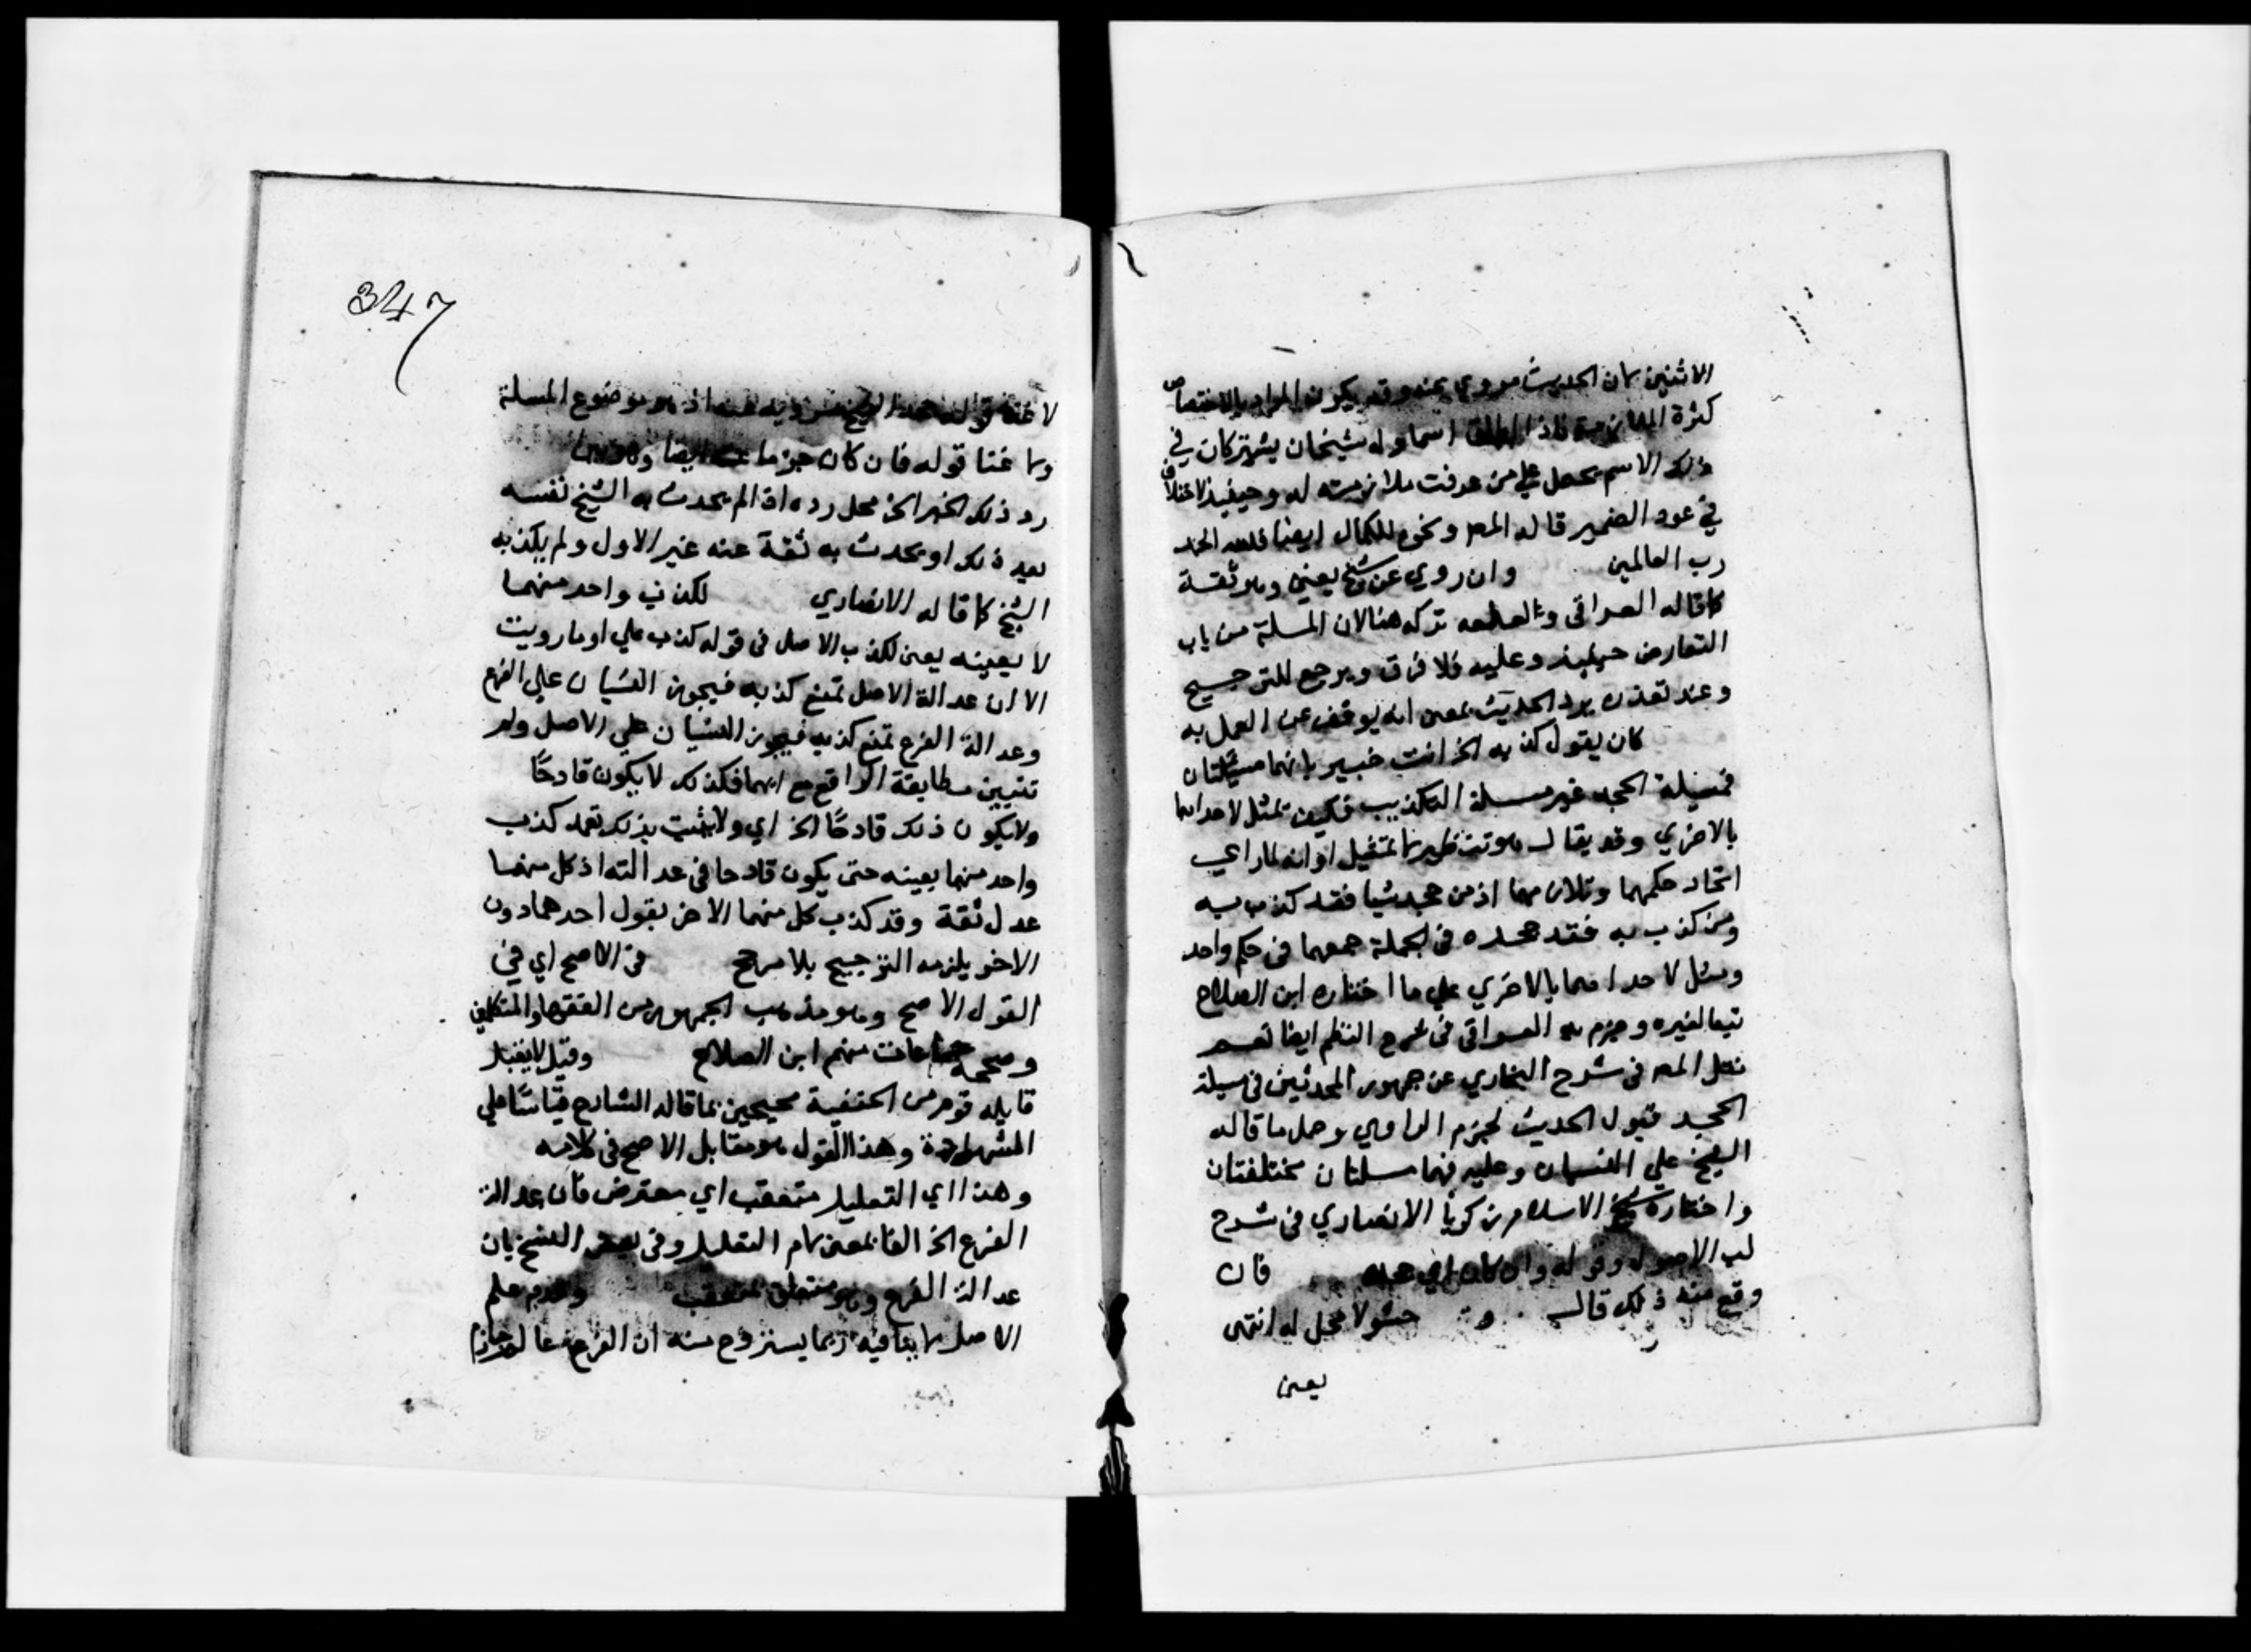 الاثنين بان الحديث مروي عنه وقد يكون المراد بالاختصاص
كثرة الملازمة فاذا اطلق اسما وله شيخان يشتركان في
ذلك الاسم يحمل علي من عرفت ملازمته له وحينيذ لاختلاف
في عود الضمير قاله المصـ ونحوه للكمال ايضا فلله الحمد
رب العالمين وان روي عن شيخ يعني وهو ثقة
كما قاله العراقي تركه هنا لان المسلة من باب
التعارض حينيذ وعليه فلا فرق ويرجع للترجيح
وعند تعذره يرد الحديث بمعنى انه يوقف عن العمل به
كان يقول كذبه الخ انت خبير بانهما مسئلتان
فمسيلة الحجد غير مسلة التكذيب فكيف تمثل لاحداهما
بالاخري وقد يقال هو تنظير لا تمثيل او انه لما راعي
اتحاد حكمهما وتلازمهما اذ من جحد شيا فقد كذب به
ومن كذب به فقد جحده في الجملة جمعهما في حكم واحد
ومثل لاحداهما بالاخري علي ما اختاره ابن الصلاح
تبعا لغيره وجزم به العراقي في شرح النظم ايضا نعم
نقل المصـ في شرح البخاري عن جمهور المحدثين في مسيلة
الحجد قبول الحديث لجزم الراوي وحمل ما قاله
الشيخ علي النسيان وعليه فهما مسلتان مختلفتان
واختاره شيخ الاسلام زكريا الانصاري في شرح
لب الاصول وقوله وان كان اي جحده فان
وقع منه ذلك قال حشو لا محل له انتهى
يعني
347
لا عنه قوله جحد الشيخ مرويه عنه اذ هو موضوع المسلة
وما عنا قوله فان كان جزما عنه ايضا
رد ذلك الخبر الخ محل رده اذا لم يحدث به الشيخ نفسه
بعد ذلك او يحدث به ثقة عنه غير الاول ولم يكذبه
الشيخ كما قاله الانصاري لكذب واحد منهما
لا بعينه يعني لكذب الاصل في قوله كذب علي او ما رويت
الا ان عدالة الاصل تمنع كذبه فيجوز النسيان علي الفرع
وعدالة الفرع تمنع كذبه فيجوز النسيان علي الاصل ولم
تتبين مطابقة الواقع مع ايهما فكذلك لا يكون قادحًا
ولا يكون ذلك قادحًا الخ اي ولا يثبت بذلك تعمد كذب
واحد منهما بعينه حتى يكون قادحا في عدالته اذ كل منهما
عدل ثقة وقد كذب كل منهما الاخر بقول احدهما دون
الاخر يلزمه الترجيح بلا مرجح في الاصح اي في
القول الاصح وهو مذهب الجمهور من الفقها والمتكلمين
وصححه جماعات منهم ابن الصلاح وقيل لا يقبل
قايله قوم من الحنفية محتجين بما قاله الشارح قياسًا علي
الشهادة وهذا القول هو مقابل الاصح في كلامه
وهذا اي التعليل متعقب اي معترض فان عدالة
الفرع الخ الفا بمعنى لام التعليل وفي بعض النسخ بان
عدالة الفرع وهو متعلق بمتعقب وعدم علم
الاصل لا ينافيه ربما يستروح منه ان الفرع